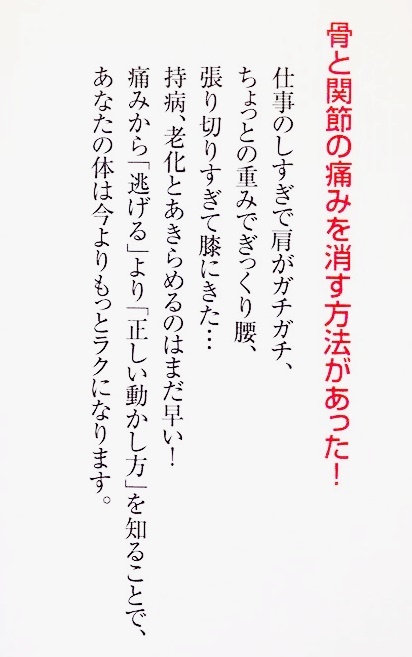 骨と関節の痛みを消す方法があった！
仕事のしすぎで肩がガチガチ、
ちょっとの重みでぎっくり腰、
張り切りすぎて膝にきた…
持病、老化とあきらめるのはまだ早い！
痛みから「逃げる」より「正しい動かし方」を知ることで、
あなたの体は今よりもっとラクになります。